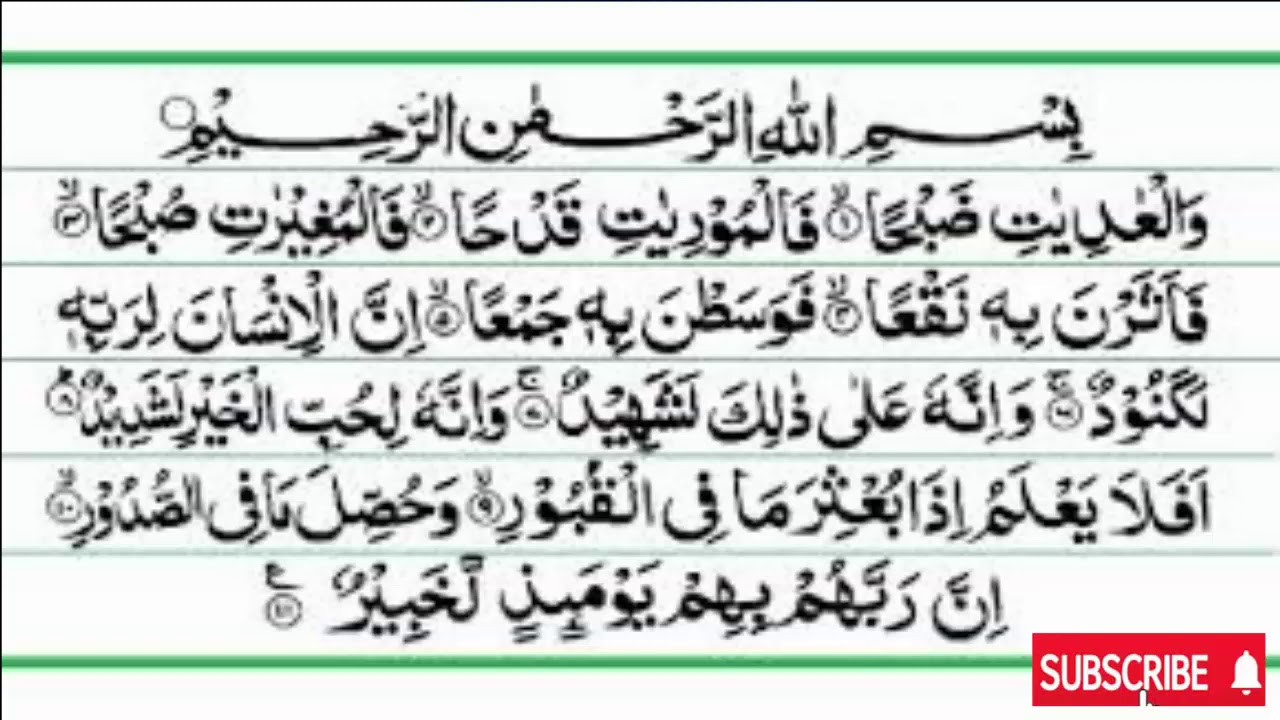 بِسْمِ اللّٰهِ الرَّحْمٰنِ الرَّحِيْمِ
وَالْعٰدِيٰتِ ضَبْحًا ۙ﴿۱﴾ فَالْمُوْرِيٰتِ قَدْحًا ۙ﴿۲﴾ فَالْمُغِيْرٰتِ صُبْحًا ۙ﴿۳﴾
فَاَثَرْنَ بِهٖ نَقْعًا ۙ﴿۴﴾ فَوَسَطْنَ بِهٖ جَمْعًا ۙ﴿۵﴾ اِنَّ الْاِنْسَانَ لِرَبِّهٖ
لَكَنُوْدٌ ۚ﴿۶﴾ وَاِنَّهٗ عَلٰى ذٰلِكَ لَشَهِيْدٌ ۚ﴿۷﴾ وَاِنَّهٗ لِحُبِّ الْخَيْرِ لَشَدِيْدٌ ؕ﴿۸﴾
اَفَلَا يَعْلَمُ اِذَا بُعْثِرَ مَا فِى الْقُبُوْرِ ۙ﴿۹﴾ وَحُصِّلَ مَا فِى الصُّدُوْرِ ۙ﴿۱۰﴾
اِنَّ رَبَّهُمْ بِهِمْ يَوْمَئِذٍ لَّخَبِيْرٌ ﴿۱۱﴾
SUBSCRIBE